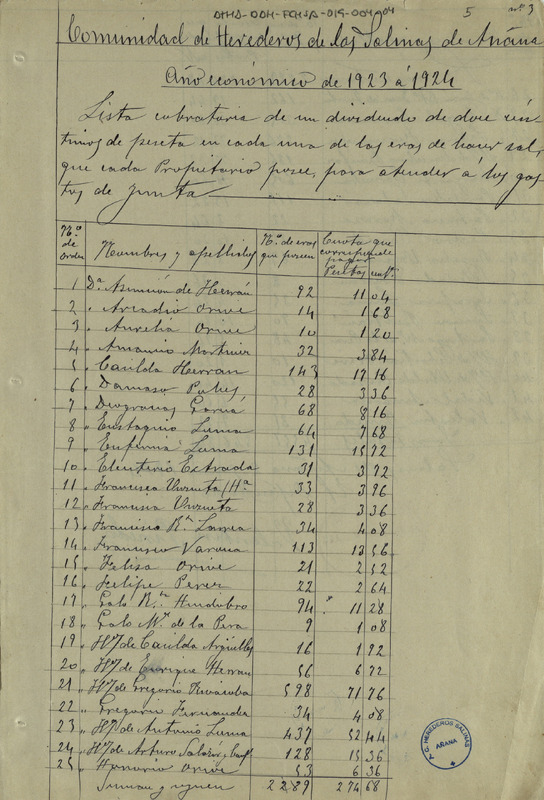 DMHA-DDH-FCHSA-016-004-04
5 nº 3
Comunidad de Herederos de las Salinas de Añana
Año económico de 1923 á 1924
Lista cobratoria de un dividendo de doce cén-
timos de peseta en cada una de las eras de hacer sal,
que cada Propietario posee, para atender á los gas-
tos de Junta
Nº de orden Nombres y apellidos Nº de eras que poseen Cuota que corresponde pagar Pesetas cents.
1 Dª Asunción de Herrán 92 11 04
2 " Arcadio Orive 14 1 68
3 " Aurelia Orive 10 1 20
4 " Amancio Martinez 32 3 84
5 " Casilda Herran 143 17 16
6 " Damaso 28 3 36
7 " Deogracias García 68 8 16
8 " Eustaquio Luma 64 7 68
9 " Eufemia Luma 131 15 72
10 " Eleuterio Extrada 31 3 72
11 " Francisca Urzueta /Hª 33 3 96
12 " Francisca Urzueta 28 3 36
13 " Francisco Rn Larrea 34 4 08
14 " Francisco Varona 113 13 56
15 " Felisa Orive 21 2 52
16 " Felipe Perez 22 2 64
17 " Galo Huidobro 94 11 28
18 " Galo Mz de la Pera 9 1 08
19 " Hs de Casilda Argüelles 16 1 92
20 " Hs de Enrique Herran 56 6 72
21 " Hs de Gregorio 598 71 76
22 " Gregorio Fernandez 34 4 08
23 " Hs de Antonio Luma 437 52 44
24 " Hs de Arturo Salazar 128 15 36
25 " Honorio Orive 53 6 36
Suman y siguen 2289 274 68
C. HEREDEROS SALINAS
AÑANA